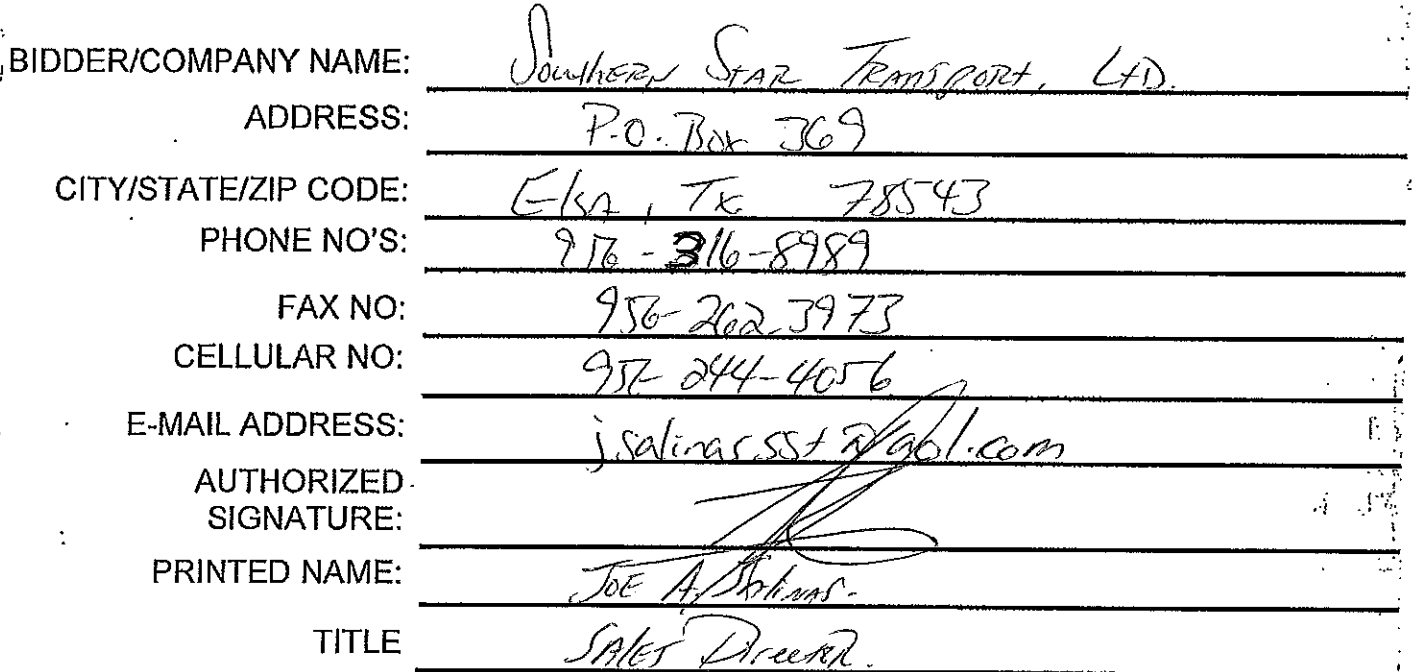 BIDDER/COMPANY NAME: Southern Star Transport, Ltd.
ADDRESS: P.O. Box 369
CITY/STATE/ZIP CODE: Elsa, Tx 78543
PHONE NO'S: 956-316-8989
FAX NO: 956-262-3973
CELLULAR NO: 956-244-4056
E-MAIL ADDRESS: j.salinas.sst@aol.com
AUTHORIZED
SIGNATURE:
PRINTED NAME: JOE A. Salinas.
TITLE Sales Director.